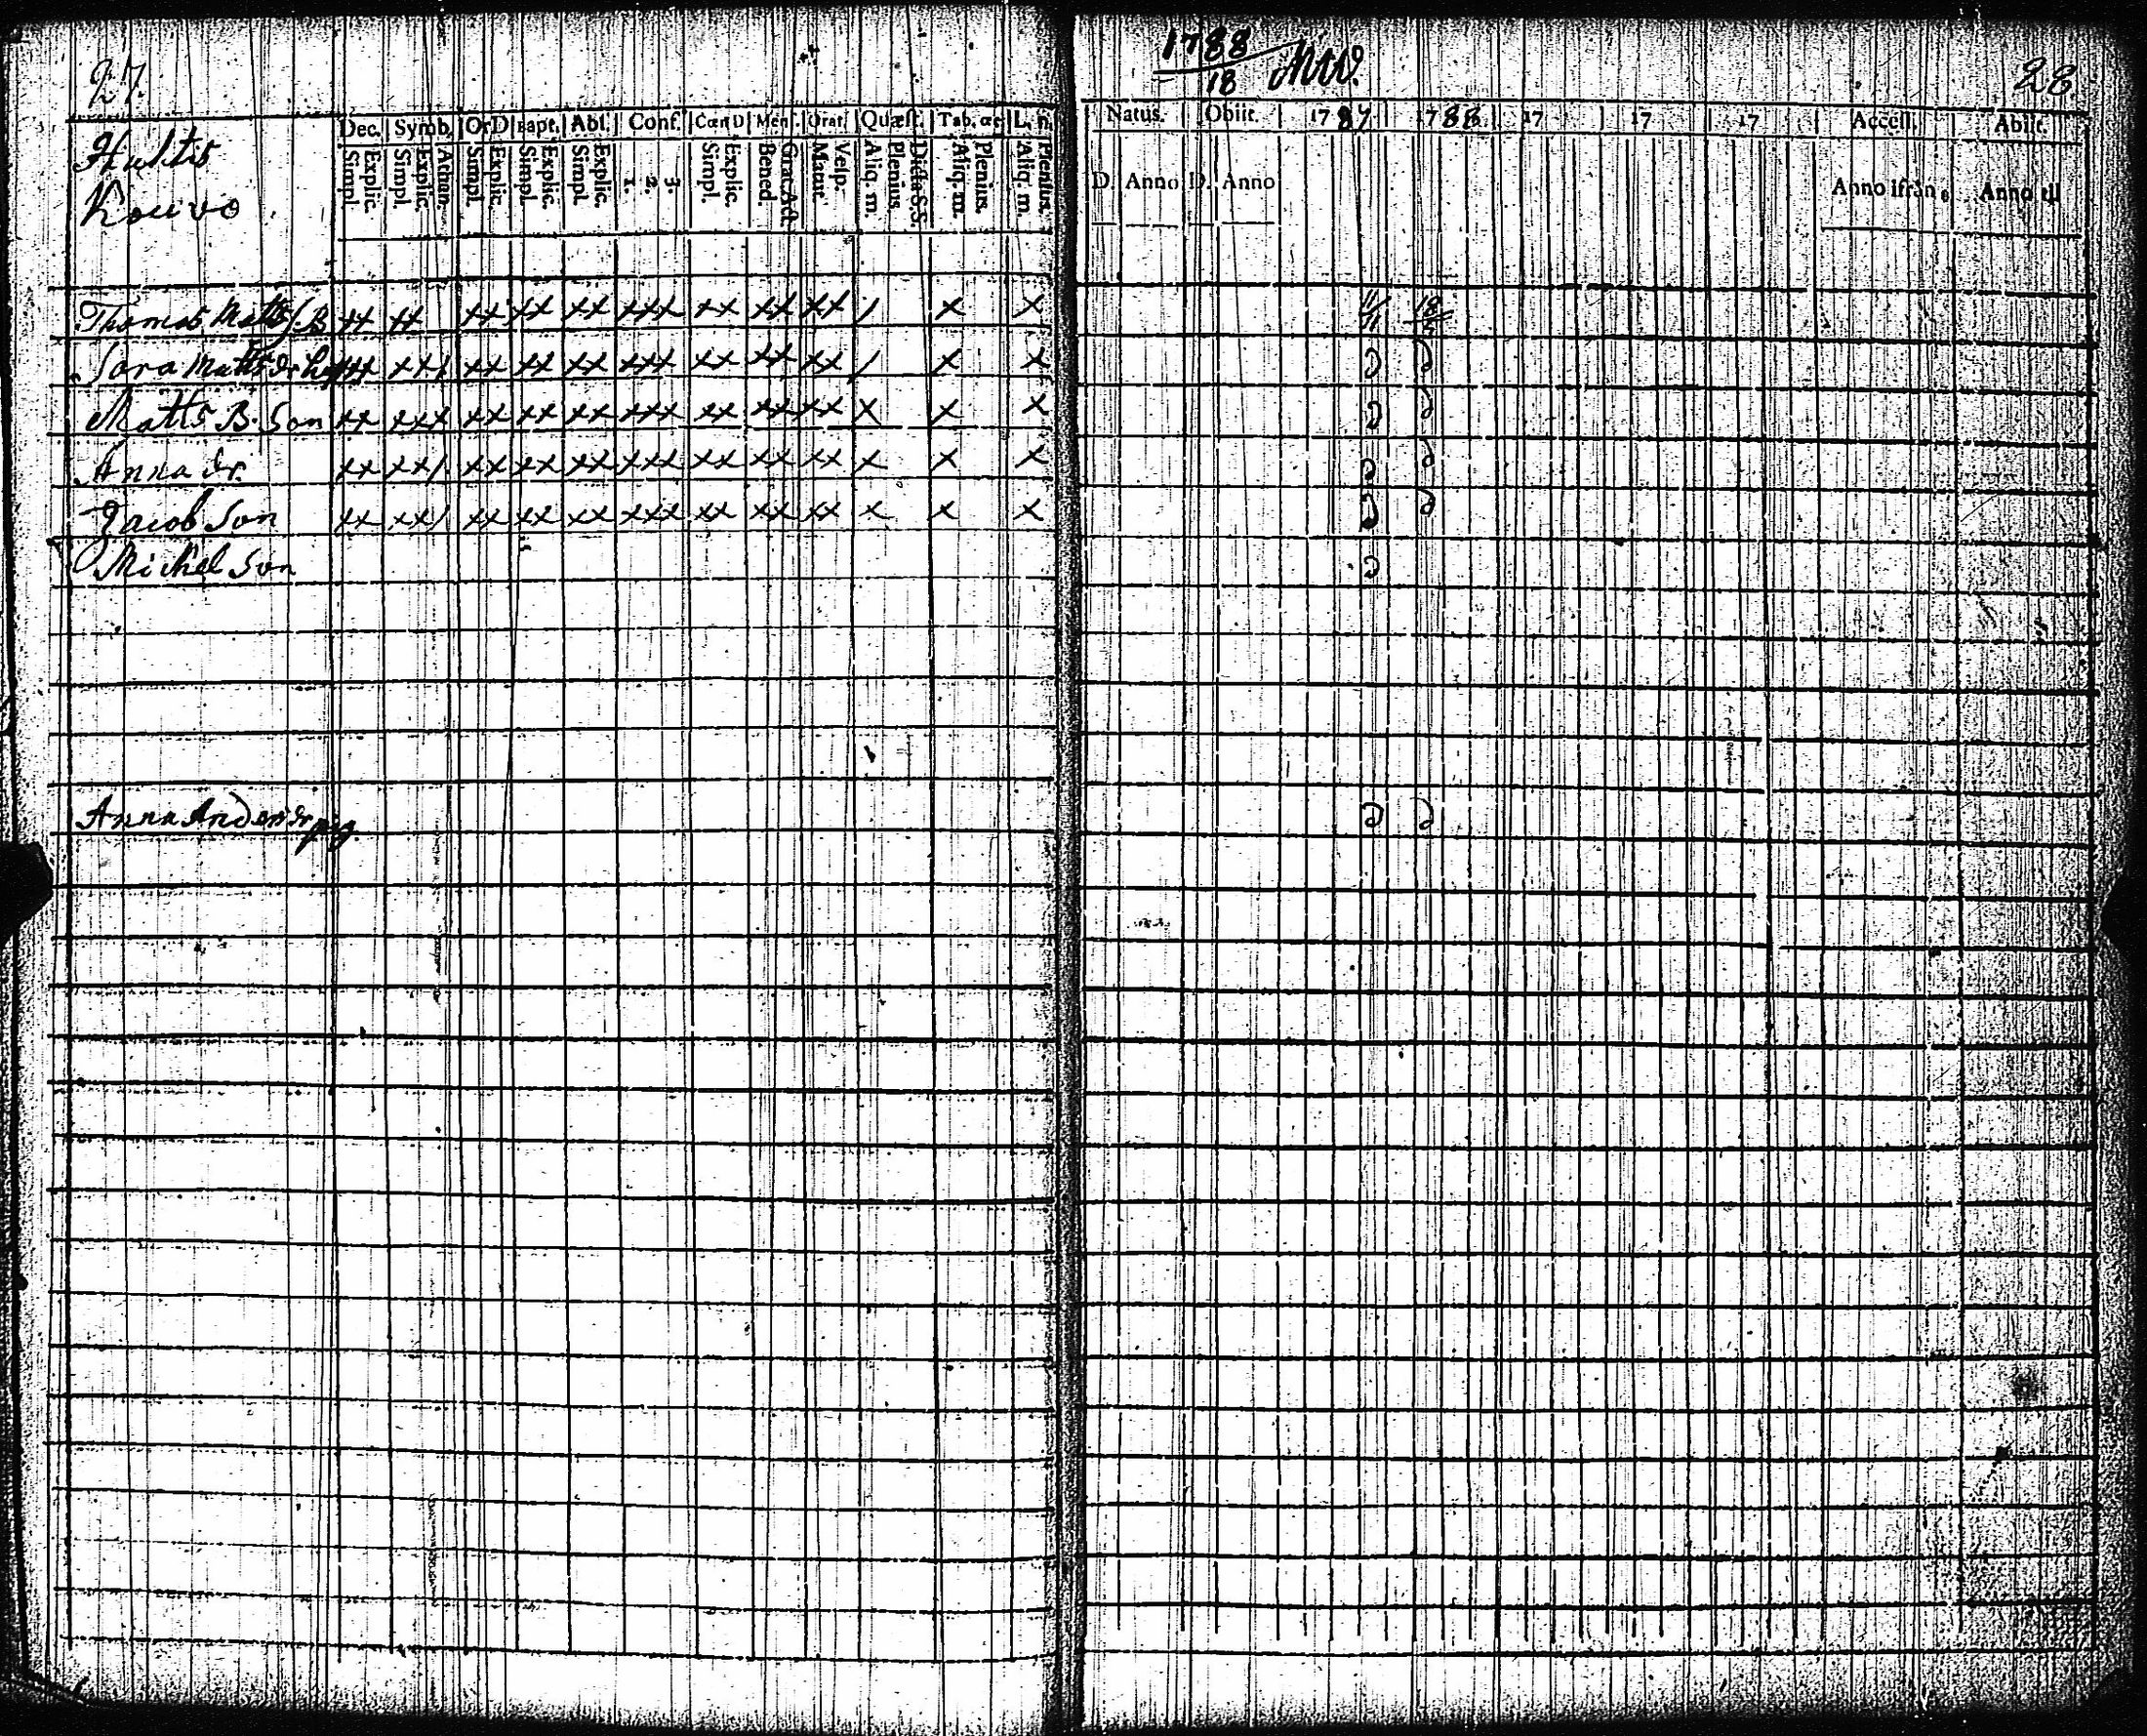 27.
Hultis
Kouvo.
Dec. Symb. Or D Bapt. Abl. Conf. Cœn D Menſ. Orat. Quæſt. Tab. œc L. n.
Simpl. Explic. Simpl. Explic. Athan. Simpl. Explic. Simpl. Explic. Simpl Explic. 1. 2. 3. Simpl. Explic. Bened. Grat. Act. Matut. Veſp. Aliq. m. Plenius. Dicta S.S. Aliq. m. Plenius. Aliq. m. Plenius.
Thomas Matts S. B xx xx xx xx xx xxx xx xx xx / x x
Sara Matts dr xx xx/ xx xx xx xxx xx xx xx / x x
Matts B. Son xx xxx xx xx xx xxx xx xx xx x x x
Anna dr. xx xx/ xx xx xx xxx xx xx xx x x x
Jacob Son xx xx/ xx xx xx xxx xx xx xx x x x
Michel Son
Anna Anders dr pig.
1788
18
28.
Natus. Obiit. 1787 1788 17 17 17 Acceſſ. Abiit.
D. Anno D. Anno Anno ifrån Anno til
11/11 18